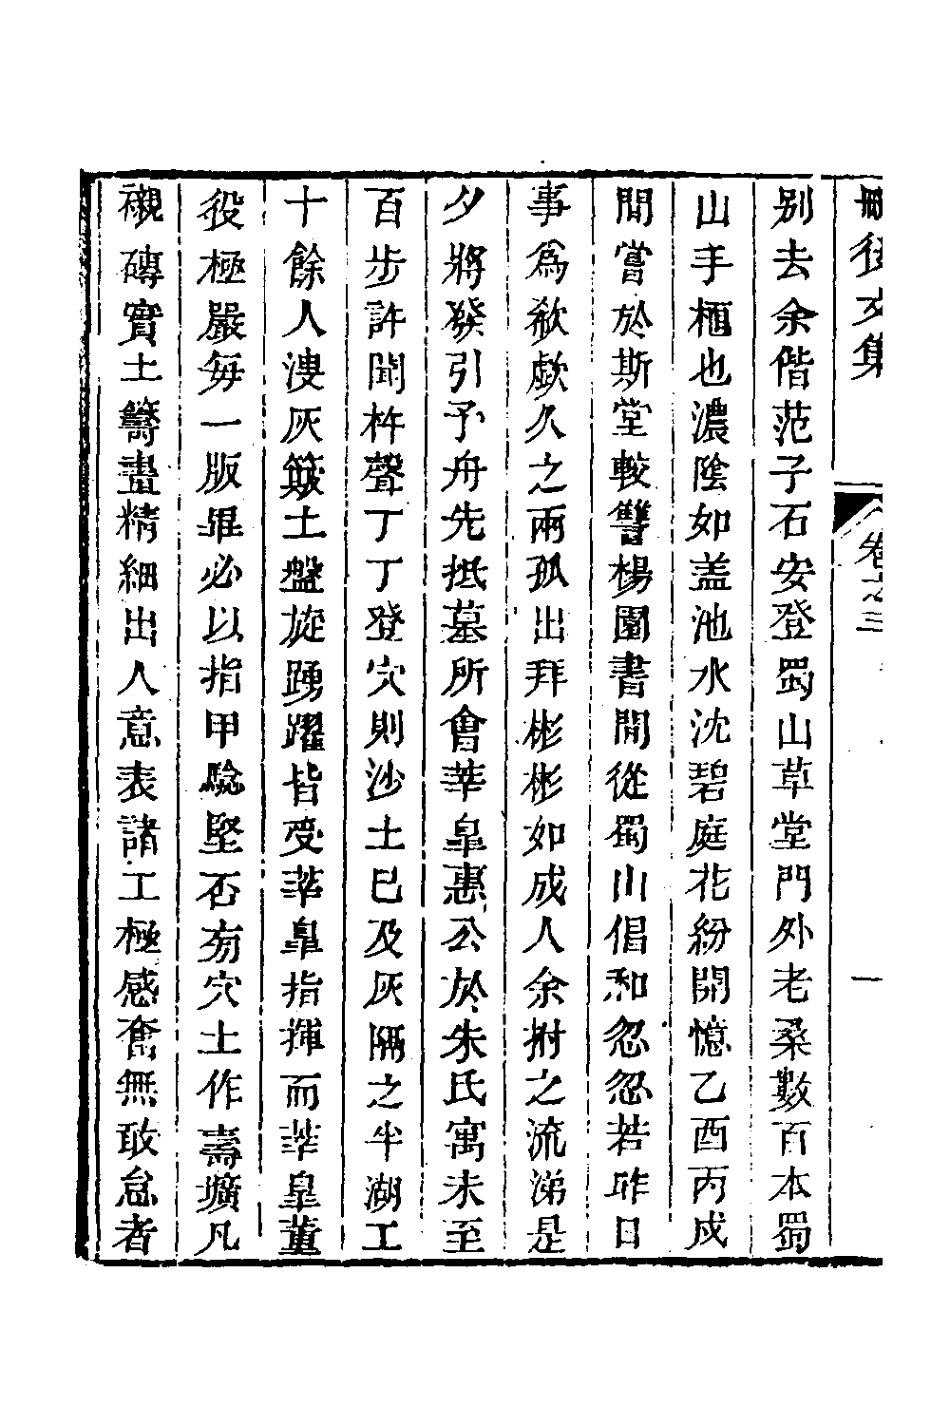 刪後文集 卷之三 一
别去余偕范子石安登蜀山草堂門外老桑數百本蜀
山手植也濃陰如盖池水沈碧庭花紛開憶乙酉丙戍
間嘗於斯堂較讐楊園書間從蜀山倡和忽忽若昨日
事為欷歔久之兩孤出拜彬彬如成人余拊之流涕是
夕將發引予舟先抵墓所會莘皐惠公於朱氏寓未至
百步許聞杵聲丁丁登穴則沙土已及灰隔之半湖工
十餘人溲灰簸土盤旋踴躍皆受莘皐指揮而莘皐董
役極嚴每一版畢必以指甲驗堅否旁穴土作壽壙凡
襯磚實土籌畫精細出人意表諸工極感奮無敢怠者